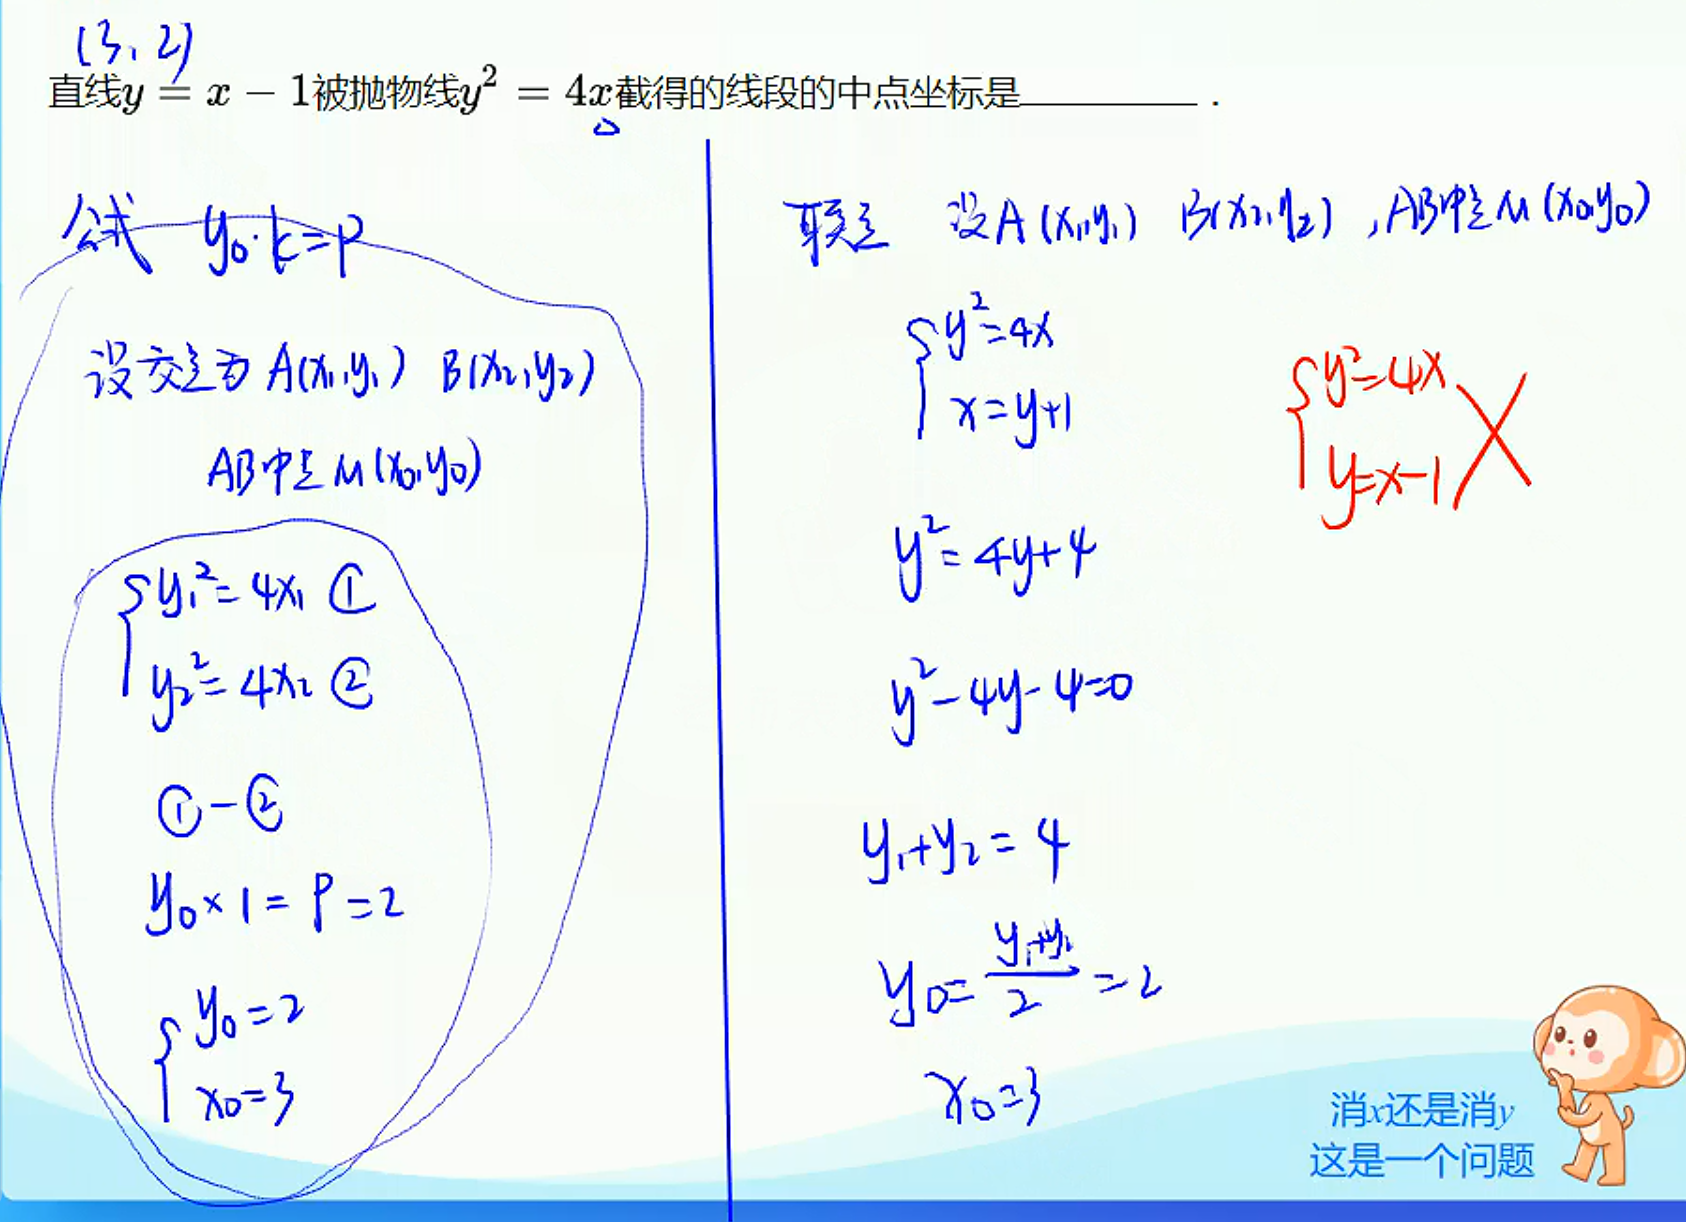 (3, 2)
直线y = x − 1被抛物线y² = 4x截得的线段的中点坐标是________.
公式 y₀·k=p
设交点为 A(x₁,y₁) B(x₂,y₂)
AB中点 M(x₀,y₀)
y₁²=4x₁ ①
y₂²=4x₂ ②
①-②
y₀×1=p=2
y₀=2
x₀=3
联立 设A(x₁,y₁) B(x₂,y₂),AB中点M(x₀,y₀)
y²=4x
x=y+1
y²=4x
y=x-1
y²=4y+4
y²-4y-4=0
y₁+y₂=4
y₀=(y₁+y₂)/2=2
x₀=3
消x还是消y
这是一个问题